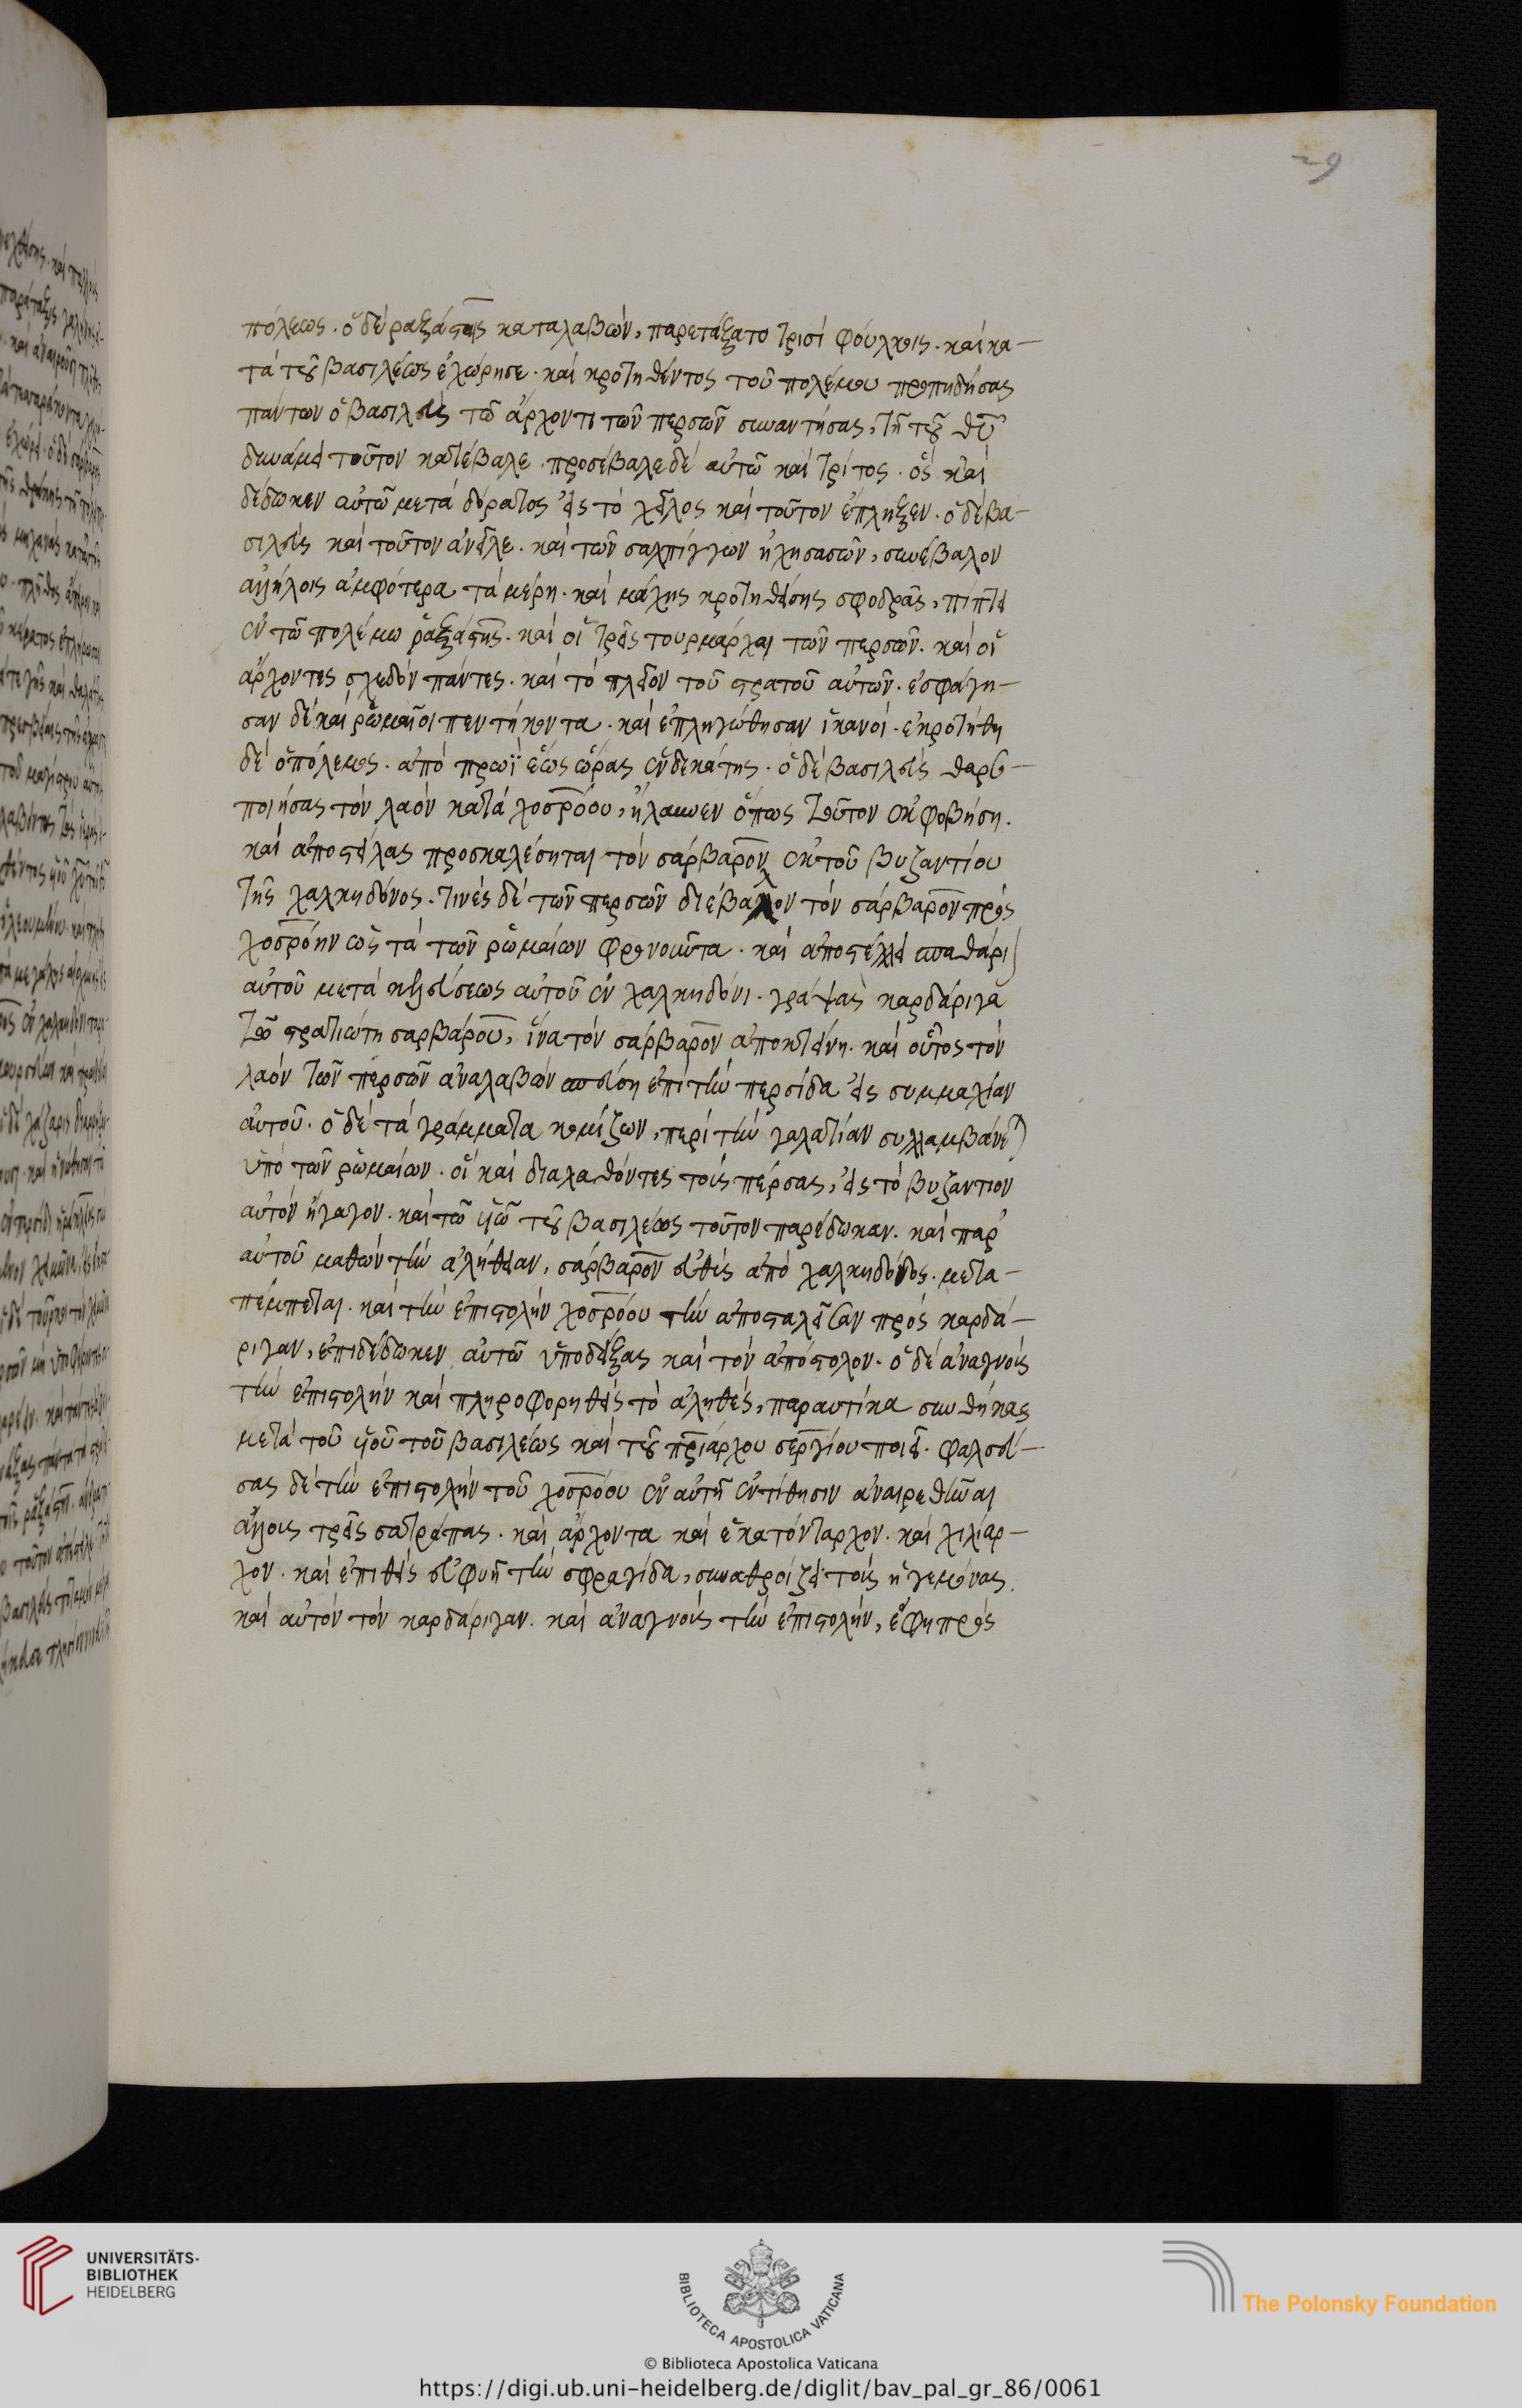 29
πόλεως. ὁ δὲ ῥαζάστης καταλαβὼν, παρετάξατο τρισὶ φούλκοις. καὶ κα-
τὰ τοῦ βασιλέως ἐχώρησε. καὶ κροτηθέντος τοῦ πολέμου προπηδήσας
πάντων ὁ βασιλεὺς τῶ ἄρχοντι τῶν περσῶν συναντήσας, τῆ τοῦ θυ
δυνάμει τοῦτον κατέβαλε. προσέβαλε δὲ αὐτῶ καὶ τρίτος. ὃς καὶ
δέδωκεν αὐτῶ μετὰ δόρατος εἰς τὸ χεῖλος καὶ τοῦτον ἔπληξεν. ὁ δὲ βα-
σιλεὺς καὶ τοῦτον ἀνεῖλε. καὶ τῶν σαλπίγγων ἠχησασῶν, συνέβαλον
ἀλλήλοις ἀμφότερα τὰ μέρη. καὶ μάχης κροτηθείσης σφοδρᾶς, πίπτει
ἐν τῶ πολέμω ῥαζάστης. καὶ οἱ τρεῖς τουρμάρχαι τῶν περσῶν. καὶ οἱ
ἄρχοντες σχεδὸν πάντες. καὶ τὸ πλεῖον τοῦ στρατοῦ αὐτῶν. ἐσφάγη-
σαν δὲ καὶ ῥωμαῖοι πεντήκοντα. καὶ ἐπληγώθησαν ἱκανοί. ἐκροτήθη
δὲ ὁ πόλεμος. ἀπὸ πρωῒ ἕως ὥρας ἑνδεκάτης. ὁ δὲ βασιλεὺς θαρσο-
ποιήσας τὸν λαὸν κατὰ χοσρόου, ἤλαυνεν ὅπως τοῦτον ἐκφοβήση.
καὶ ἀποστείλας προσκαλέσηται τὸν σάρβαρον ἐκ τοῦ βυζαντίου
τῆς χαλκηδόνος. τινὲς δὲ τῶν περσῶν διέβαλλον τὸν σάρβαρον πρὸς
χοσρόην ὡς τὰ τῶν ῥωμαίων φρονοῦντα. καὶ ἀποστέλλει σπαθάρι
αὐτοῦ μετὰ κελεύσεως αὐτοῦ ἐν χαλκηδόνι. γράψας καρδάριγα
τῶ στρατιώτη σαρβάρου, ἵνα τὸν σάρβαρον ἀποκτείνη. καὶ οὗτος τὸν
λαὸν τῶν περσῶν ἀναλαβὼν σπεύση ἐπὶ τὴν περσίδα εἰς συμμαχίαν
αὐτοῦ. ὁ δὲ τὰ γράμματα κομίζων, περὶ τὴν γαλατίαν συλλαμβάνετ
ὑπὸ τῶν ῥωμαίων. οἳ καὶ διαλαθόντες τοὺς πέρσας, εἰς τὸ βυζάντιον
αὐτὸν ἤγαγον. καὶ τῶ υἱῶ τοῦ βασιλέως τοῦτον παρέδωκαν. καὶ παρ'
αὐτοῦ μαθὼν τὴν ἀλήθειαν, σάρβαρον εὐθὺς ἀπὸ χαλκηδόνος. μετα-
πέμπεται. καὶ τὴν ἐπιστολὴν χοσρόου τὴν ἀποσταλεῖσαν πρὸς καρδά-
ριγαν, ἐπιδέδωκεν αὐτῶ ὑποδείξας καὶ τὸν ἀπόστολον. ὁ δὲ ἀναγνοὺς
τὴν ἐπιστολὴν καὶ πληροφορηθεὶς τὸ ἀληθὲς, παραυτίκα συνθήκας
μετὰ τοῦ υἱοῦ τοῦ βασιλέως καὶ τοῦ πριάρχου σεργίου ποιεῖ. φαλσεύ-
σας δὲ τὴν ἐπιστολὴν τοῦ χοσρόου ἐν αὐτῆ ἐντίθησιν ἀναιρεθῆναι
ἄλλους τρεῖς σατράπας. καὶ ἄρχοντα καὶ ἑκατόνταρχον. καὶ χιλίαρ-
χον. καὶ ἐπιθεὶς εὐφυῆ τὴν σφραγίδα, συναθροίζει τοὺς ἡγεμόνας.
καὶ αὐτὸν τὸν καρδάριγαν. καὶ ἀναγνοὺς τὴν ἐπιστολὴν, ἔφη πρὸς
UNIVERSITÄTS-
BIBLIOTHEK
HEIDELBERG
BIBLIOTECA APOSTOLICA VATICANA
The Polonsky Foundation
© Biblioteca Apostolica Vaticana
https://digi.ub.uni-heidelberg.de/diglit/bav_pal_gr_86/0061